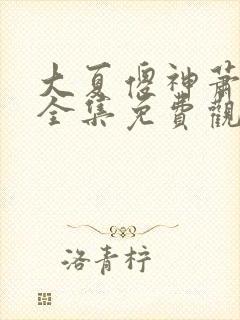 大夏傻神蕭
全集免費觀
洛青柠